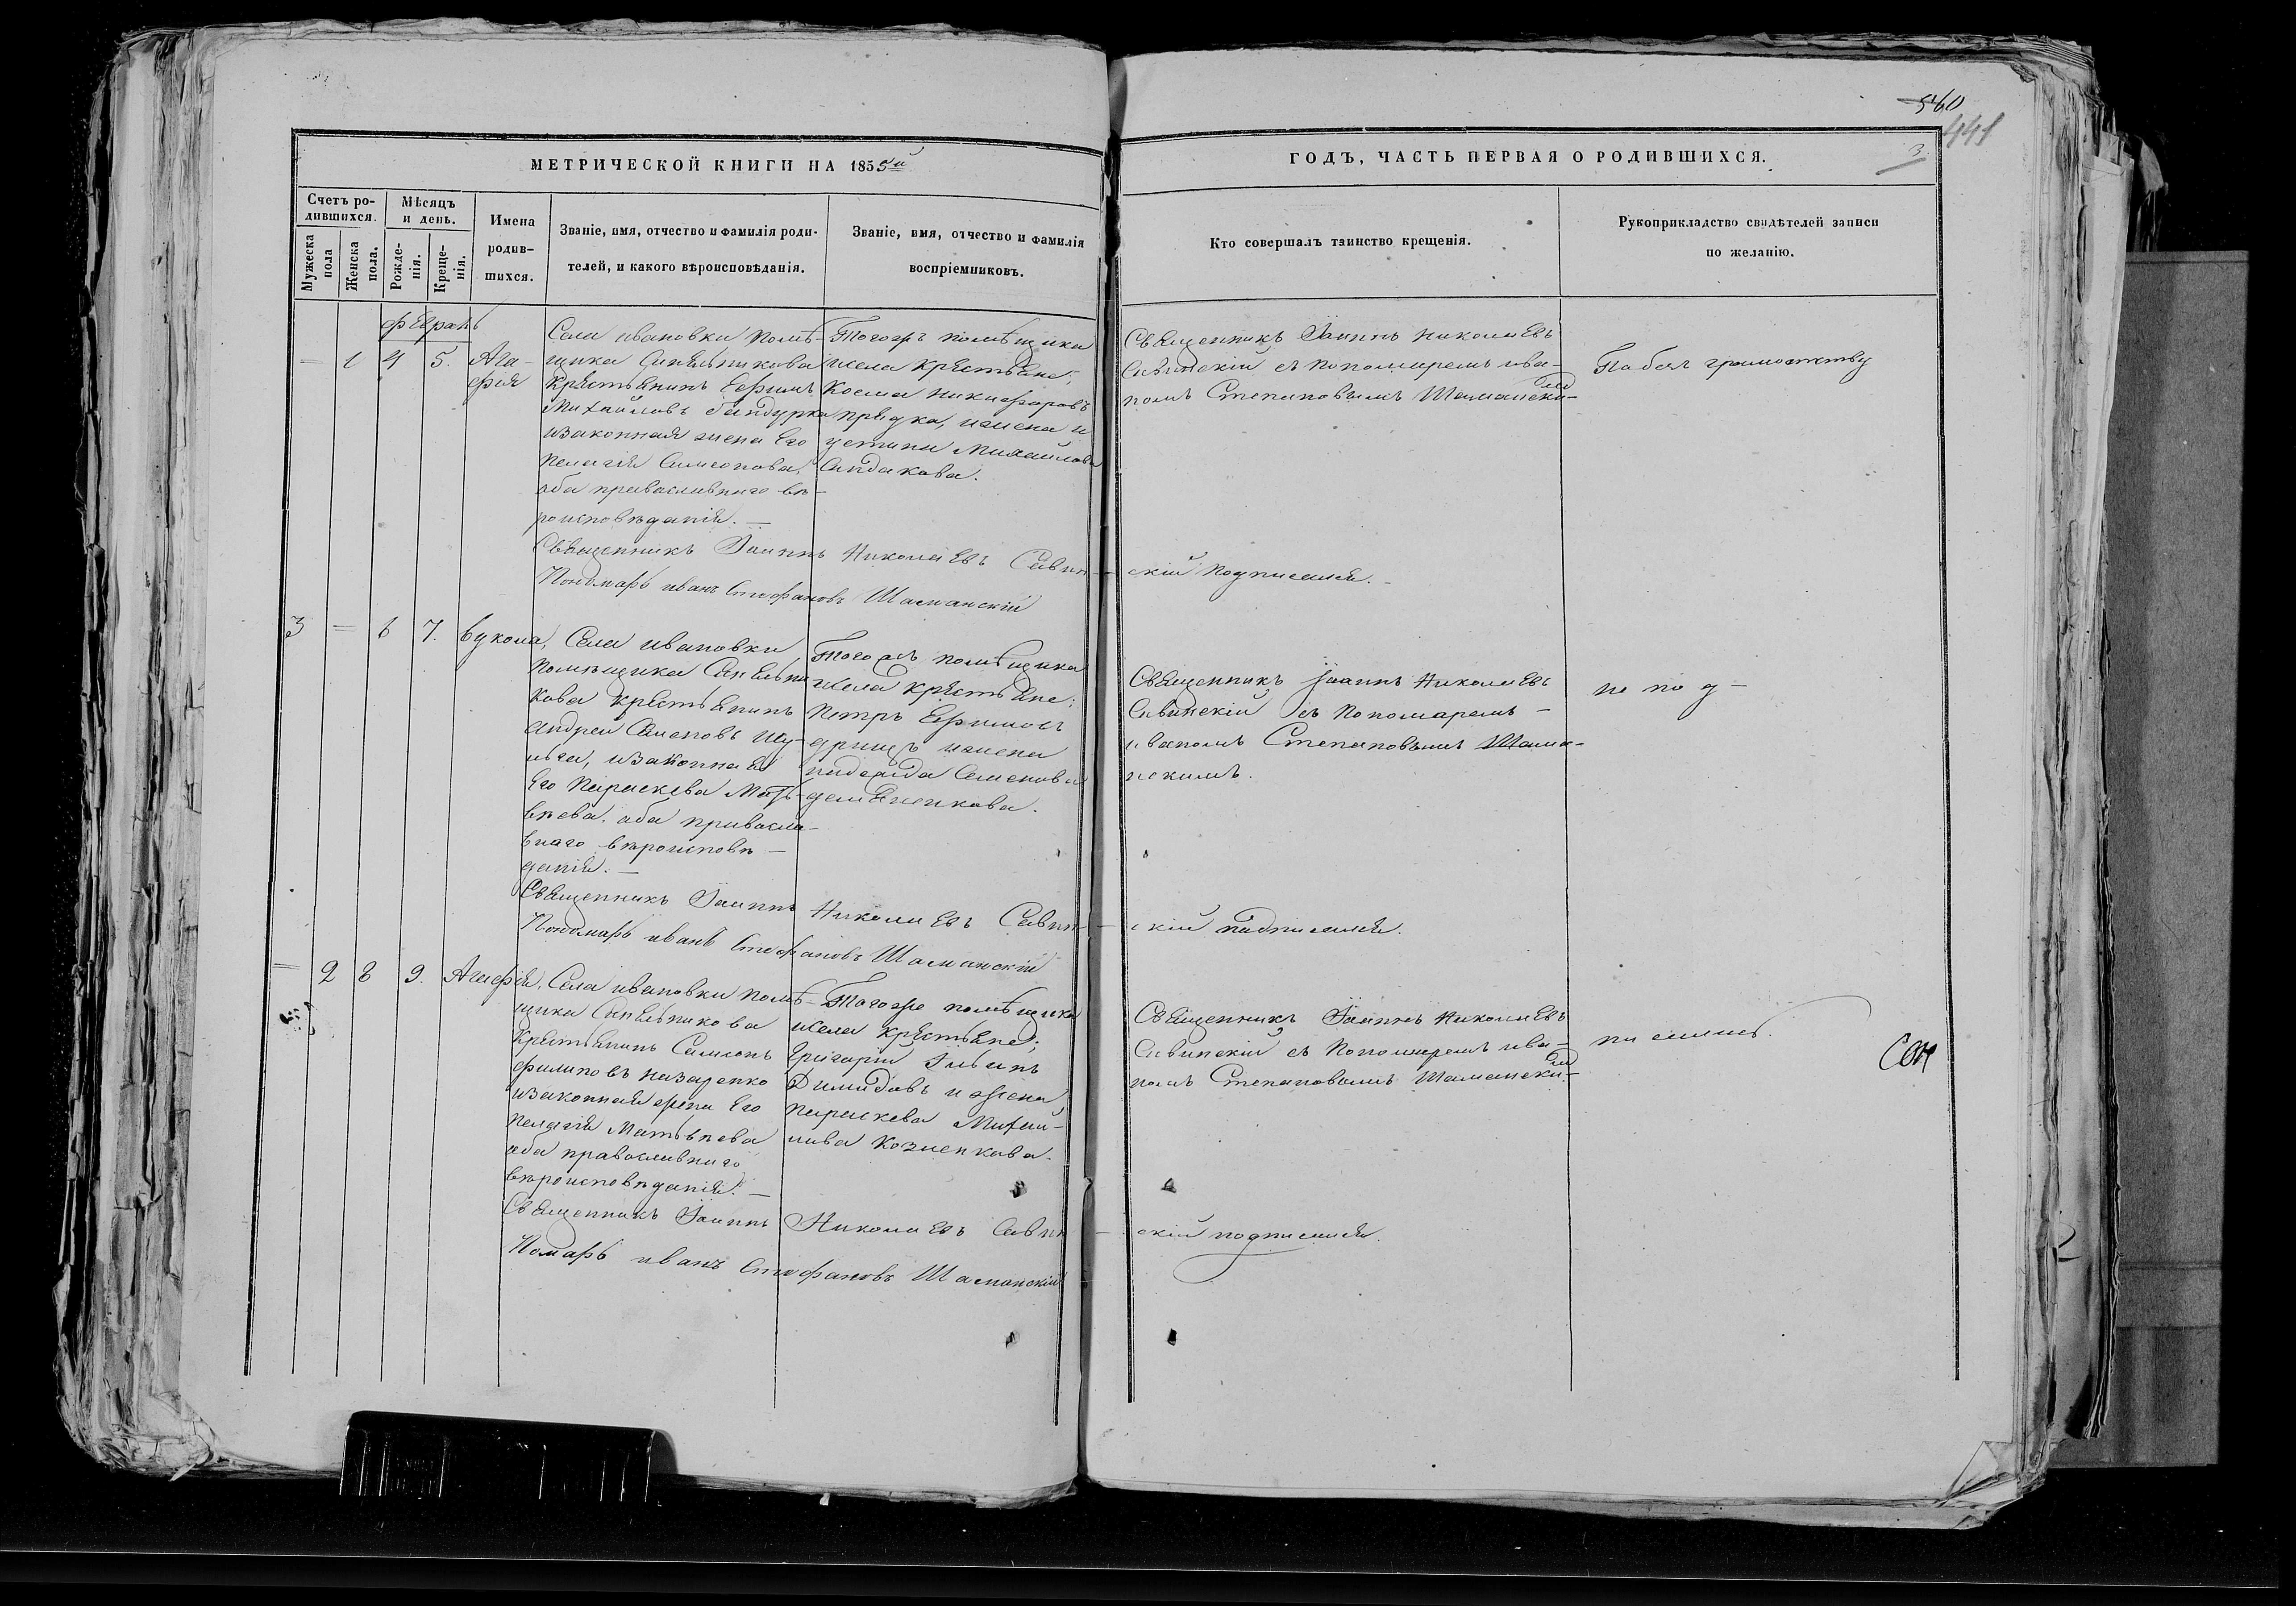 560
441
3
МЕТРИЧЕСКОЙ КНИГИ НА 1855й
ГОДЪ, ЧАСТЬ ПЕРВАЯ О РОДИВШИХСЯ.
Счетъ ро-
дившихся.
Мужеска
пола
Женска
пола.
Мѣсяцъ
и день.
Рожде-
нія.
Креще-
нія.
Имена
родив-
шихся.
Званіе, имя, отчество и фамилія роди-
телей, и какого вѣроисповѣданія.
Званіе, имя, отчество и фамилія
воспріемниковъ.
Кто совершалъ таинство крещенія.
Рукоприкладство свидѣтелей записи
по желанію.
февраль
= 1 4 5. Ага-
фія
Села ивановки помѣ-
щика Синельникова
крестьянинъ Ефимъ
Михайловъ бандурка
изаконная жена его
Пелагія Симеонова,
оба православнаго вѣ-
роисповѣданія. —
Тогожъ помѣщика
исела крестьяне;
Косма никифоровъ
прядка, ижена и
устина Михайлова
Священникъ Іоаннъ николаевъ
Савинскій съ пономаремъ ива-
номъ Степановымъ Шамански-
мъ
Священникъ Іоаннъ Николаевъ Савин-
скій подписался. -
Пономарь иванъ Стефановъ Шаманскій
3 = 6 7. вукола,
Села ивановки
помѣщика Синельни
кова крестьянинъ
андрей Семеновъ
изаконная
его параскева Матѳ-
вѣева. оба правосла-
внаго вѣроисповѣ-
данія. —
помѣщика
исела крестьяне;
Петръ Ефимовъ
ижена
Семенова
Священникъ Іоаннъ Николаевъ
Савинскій съ Пономаремъ -
иваномъ Степановымъ Шама-
нскимъ.
не под-
Священникъ Іоаннъ Николаевъ Савин-
скій подписался.
Пономарь иванъ Стефановъ Шаманскій
= 2 8 9. Агафія,
Села ивановки помѣ-
щика Синельникова
крестьянинъ Самсонъ
филиповъ назаренко
изаконная жена его
пелагія Матвѣева
оба православнаго
вѣроисповѣданія. —
Тогоже помѣщика
исела крестьяне;
григорій
Димидовъ и жена
параскева Михай-
лова Козленкова.
Священникъ Іоаннъ николаевъ
Савинскій съ пономаремъ ива-
номъ Степановымъ Шамански-
мъ
писались.
Священникъ Іоаннъ Николаевъ Савин-
скій подписался.
Помарь иванъ Стефановъ Шаманскій